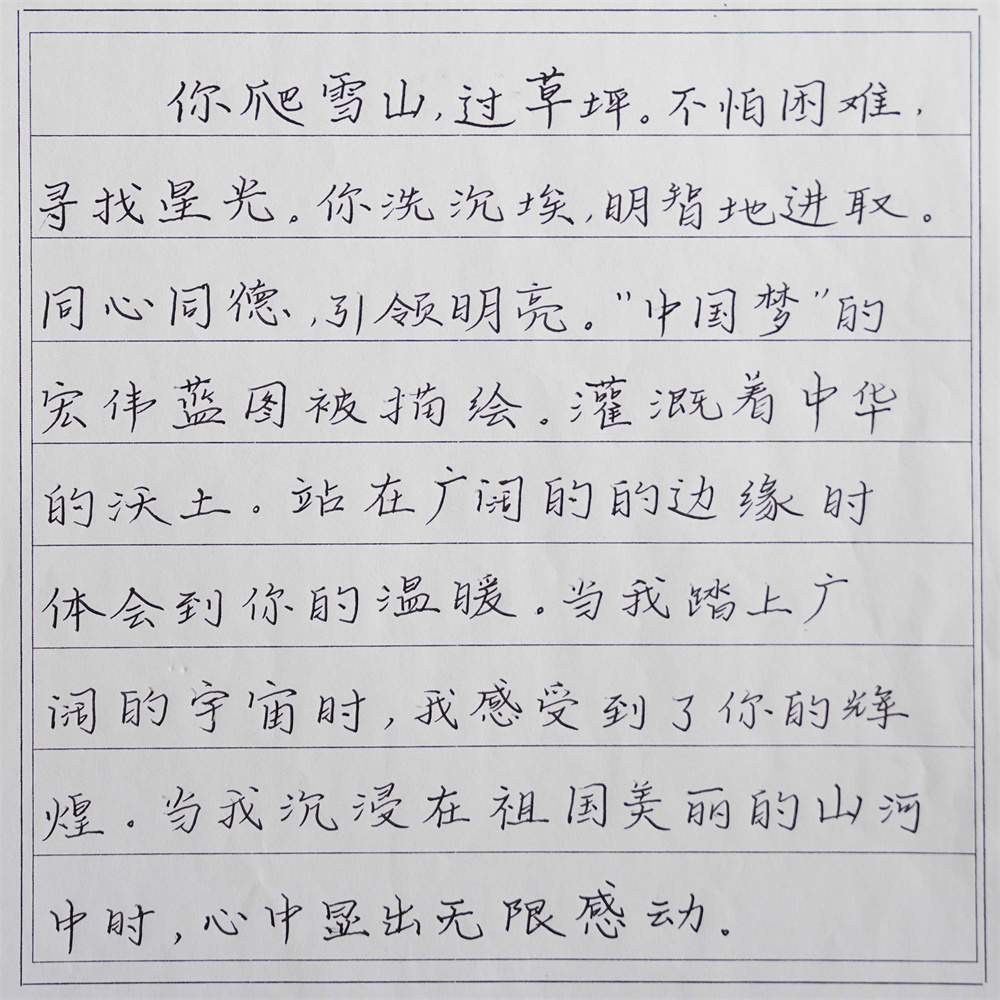 你爬雪山,过草坪。不怕困难,
寻找星光。你洗沉埃,明智地进取。
同心同德,引领明亮。“中国梦”的
宏伟蓝图被描绘。灌溉着中华
的沃土。站在广阔的的边缘时
体会到你的温暖。当我踏上广
阔的宇宙时,我感受到了你的辉
煌。当我沉浸在祖国美丽的山河
中时,心中显出无限感动。